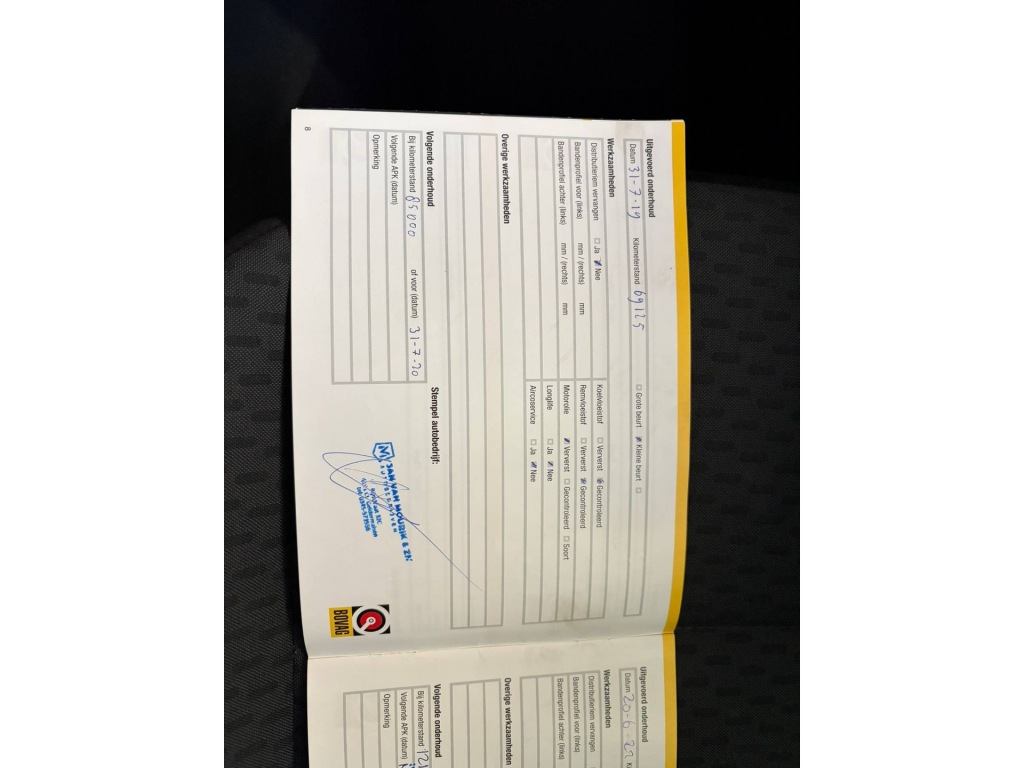 Uitgevoerd onderhoud
Datum 31-7-19 Kilometerstand 69125 Grote beurt Kleine beurt
Werkzaamheden
Distributieriem vervangen Ja Nee Koelvloeistof Ververst Gecontroleerd
Bandenprofiel voor (links) mm / (rechts) mm Remvloeistof Ververst Gecontroleerd
Bandenprofiel achter (links) mm / (rechts) mm Motorolie Ververst Gecontroleerd Soort
Longlife Ja Nee
Aircoservice Ja Nee
Overige werkzaamheden
Volgende onderhoud Stempel autobedrijf:
Bij kilometerstand 85000 of voor (datum) 31-7-20
Volgende APK (datum)
Opmerking
JAN VAN MOURIK & ZN
AUTOBEDRIJVEN
BOVAG
8
Uitgevoerd onderhoud
Datum 20-6-22
Werkzaamheden
Distributieriem vervangen
Bandenprofiel voor (links)
Bandenprofiel achter (links)
Overige werkzaamheden
Volgende onderhoud
Bij kilometerstand
Volgende APK (datum)
Opmerking